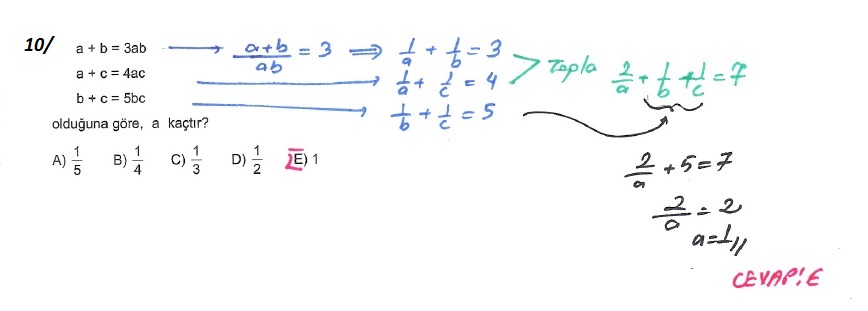 10/ a + b = 3ab → (a+b)/(ab) = 3 ⇒ 1/a + 1/b = 3
a + c = 4ac → 1/a + 1/c = 4 > Topla 2/a + 1/b + 1/c = 7
b + c = 5bc → 1/b + 1/c = 5
olduğuna göre, a kaçtır?
A) 1/5 B) 1/4 C) 1/3 D) 1/2 E) 1
2/a + 5 = 7
2/a = 2
a = 1//
CEVAP: E